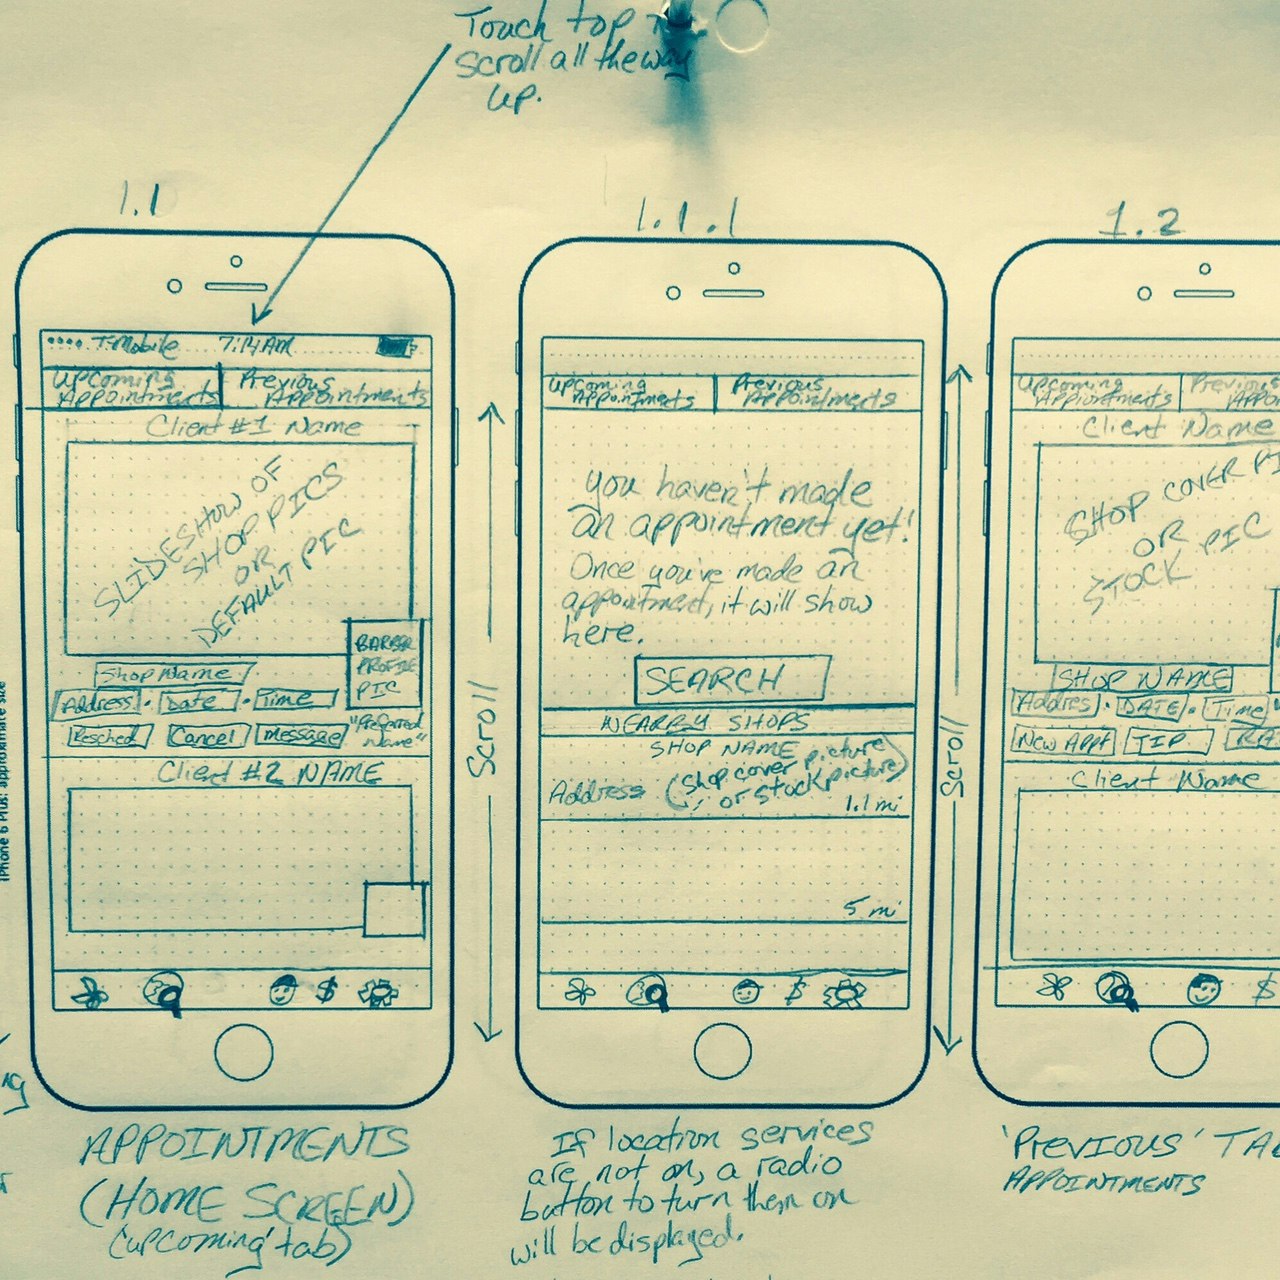 Touch top to
scroll all the way
up.
1.1
1.1.1
1.2
T-Mobile 7:14 AM
Upcoming Appointments
Previous Appointments
Client #1 Name
SLIDESHOW OF
SHOP PICS
OR
DEFAULT PIC
BARBER
PROFILE
PIC
Shop Name
Address · Date · Time
Resched Cancel Message
"Preferred
Name"
Client #2 NAME
Scroll
iPhone 6 Plus: approximate size
APPOINTMENTS
(HOME SCREEN)
('upcoming' tab)
Upcoming Appointments
Previous Appointments
You haven't made
an appointment yet!
Once you've made an
appointment, it will show
here.
SEARCH
NEARBY SHOPS
SHOP NAME
(shop cover picture
or stock picture)
Address
1.1 mi
5 mi
Scroll
If location services
are not on, a radio
button to turn them on
will be displayed.
Upcoming Appointments
Previous
Client Name
SHOP COVER
OR
STOCK PIC
SHOP NAME
Address · DATE · Time
New Appt TIP
Client Name
$
$
$
'PREVIOUS'
APPOINTMENTS